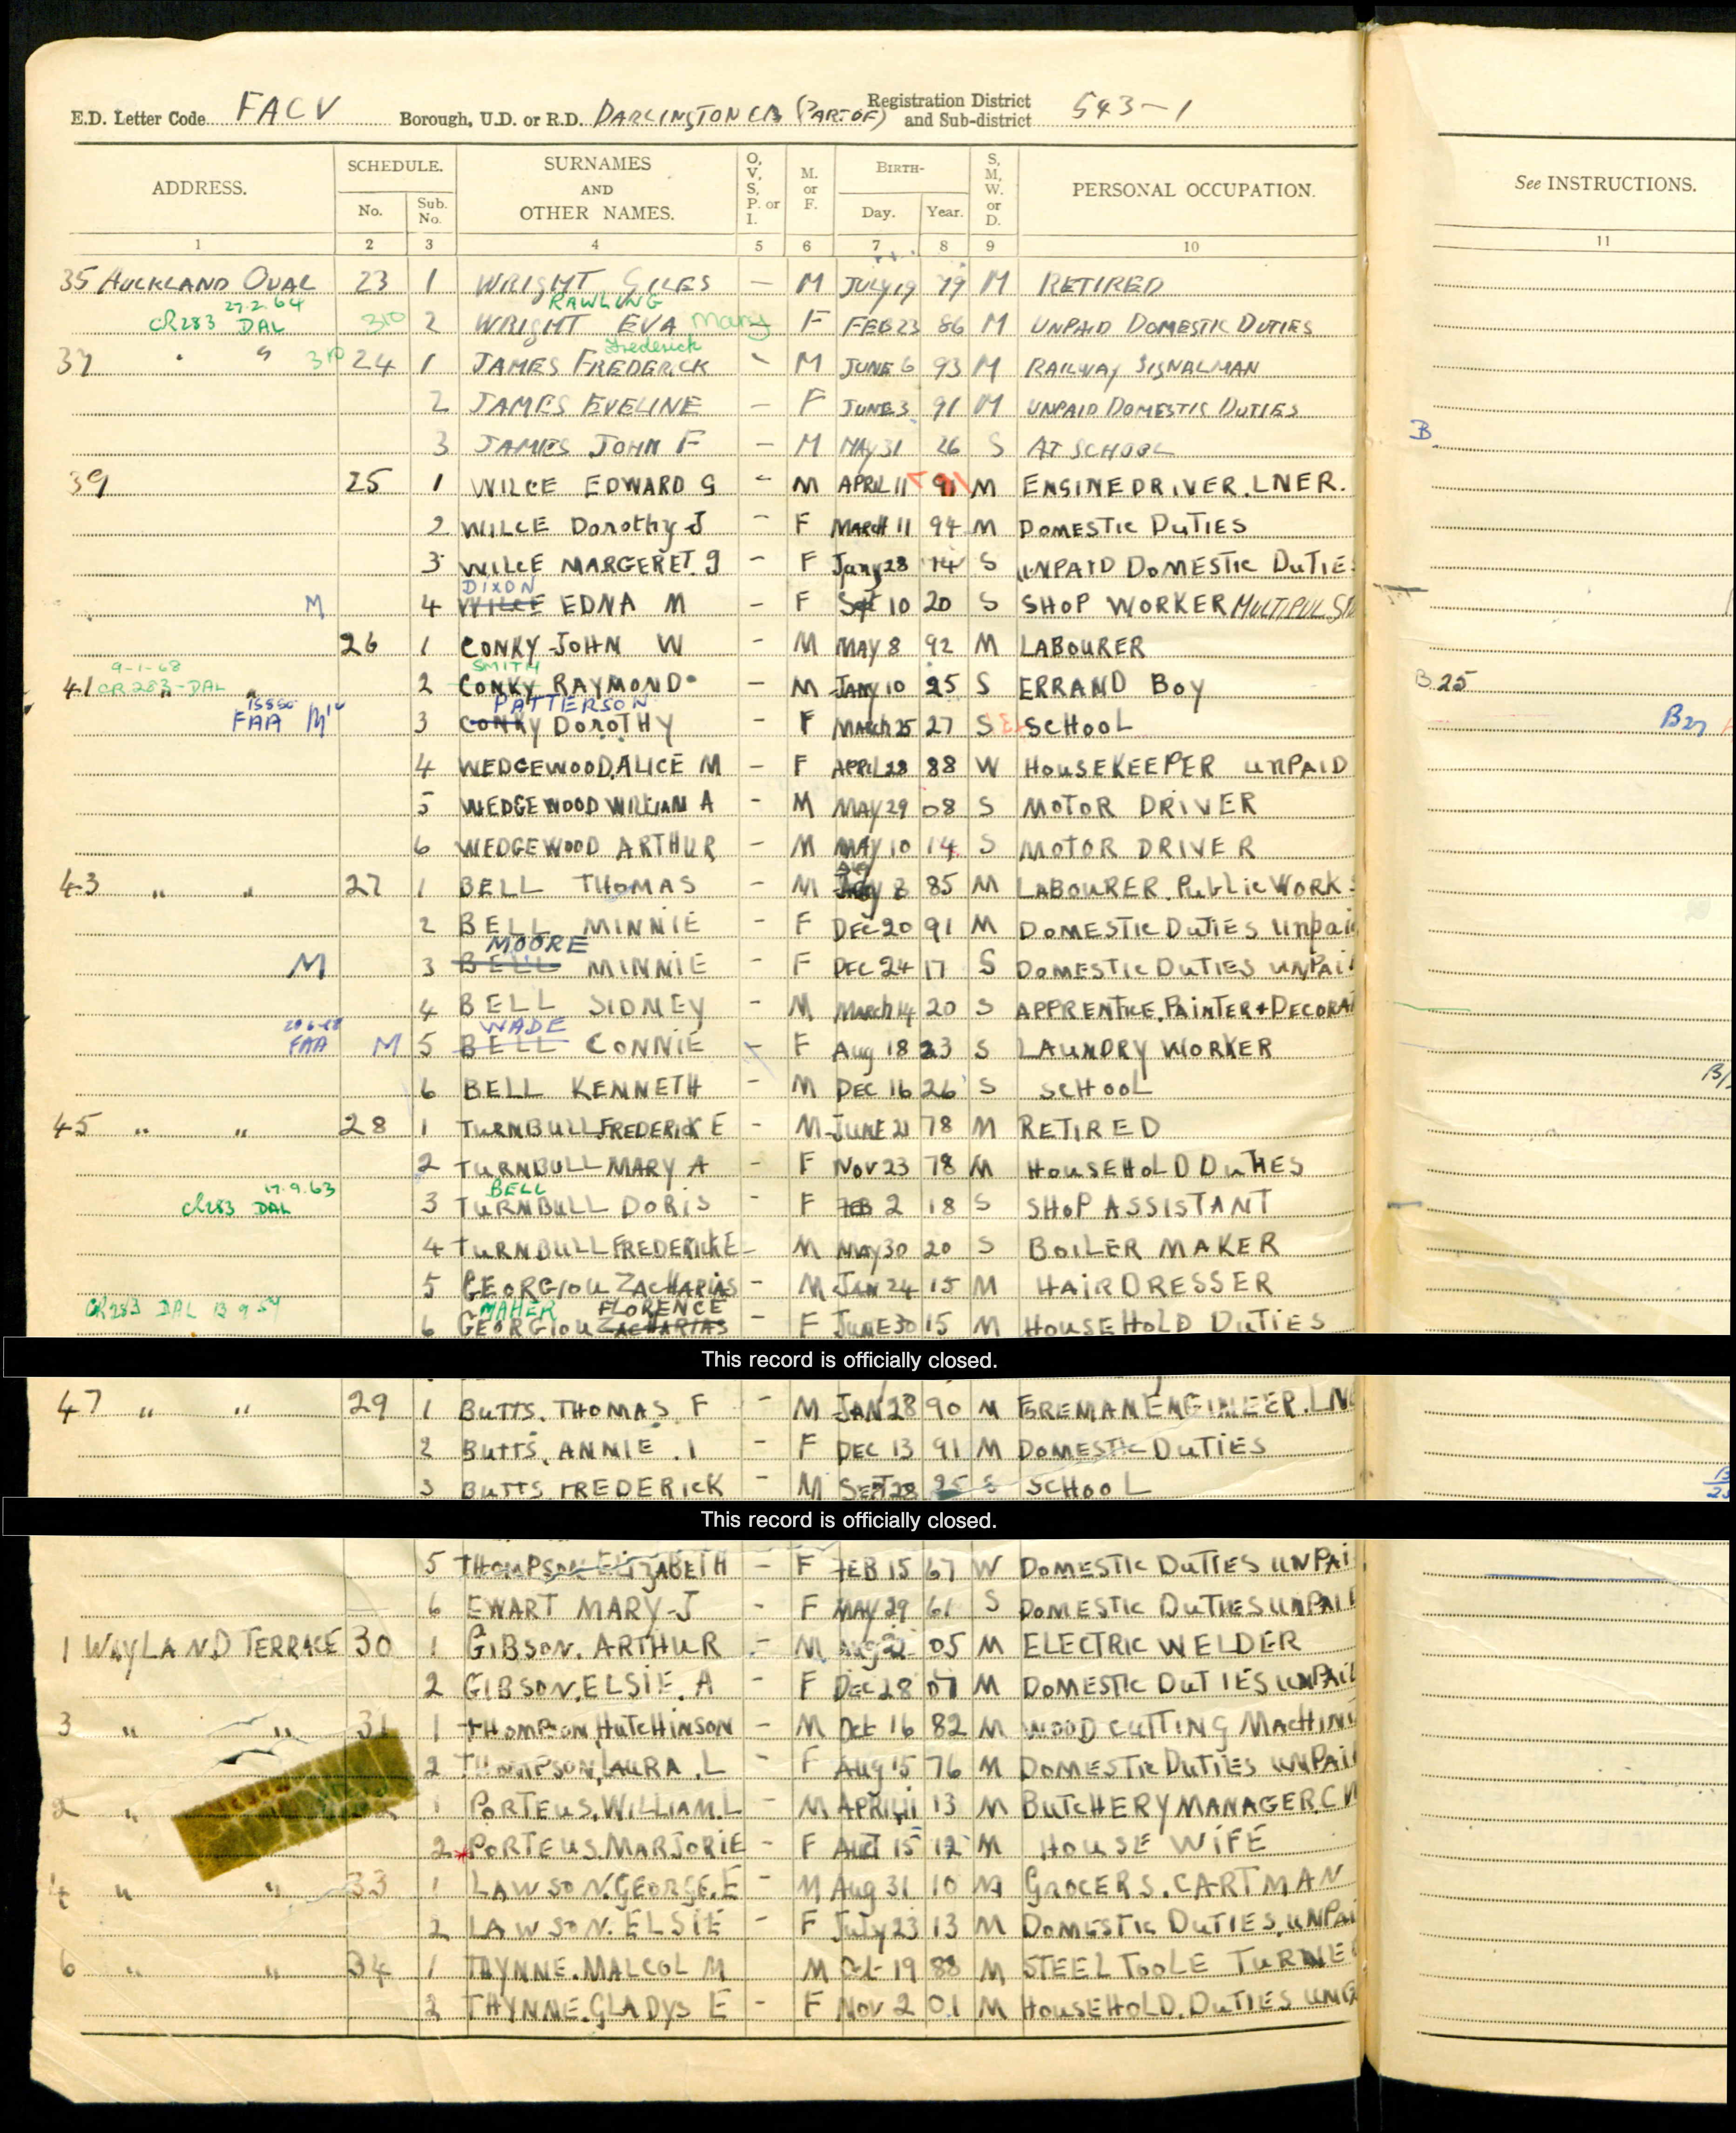 E.D. Letter Code FACV Borough, U.D. or R.D. DARLINGTON CB (PART OF) Registration District and Sub-district 543-1
ADDRESS. SCHEDULE. No. Sub. No. SURNAMES AND OTHER NAMES. O, V, S, P. or I. M. or F. BIRTH- Day. Year. S, M, W. or D. PERSONAL OCCUPATION. See INSTRUCTIONS.
1 2 3 4 5 6 7 8 9 10 11
35 AUCKLAND OVAL 23 1 WRIGHT GILES — M JULY 19 79 M RETIRED
27.2.64 RAWLING
CR283 DAL 310 2 WRIGHT EVA Mary — F FEB 23 86 M UNPAID DOMESTIC DUTIES
Frederick
37 " " 310 24 1 JAMES FREDERICK - M JUNE 6 93 M RAILWAY SIGNALMAN
2 JAMES EVELINE — F JUNE 3 91 M UNPAID DOMESTIC DUTIES
3 JAMES JOHN F — M MAY 31 26 S AT SCHOOL B
39 25 1 WILCE EDWARD G - M APRIL 11 91 M ENGINEDRIVER. LNER.
2 WILCE Dorothy J - F MARCH 11 94 M DOMESTIC DUTIES
3 WILCE MARGERET. J - F Jany 28 14 S UNPAID DOMESTIC DUTIES
DIXON
M 4 WILCE EDNA M - F Sept 10 20 S SHOP WORKER MULTIPUL
26 1 CONKY JOHN W - M MAY 8 92 M LABOURER
9-1-68 SMITH
41 CR.283-DAL " " 2 CONKY RAYMOND - M JANY 10 25 S ERRAND BOY B.25
PATTERSON
FAA M 3 CONKY DOROTHY - F MARCH 25 27 S SCHOOL B27
4 WEDGEWOOD, ALICE M - F APRIL 28 88 W HOUSEKEEPER UNPAID
5 WEDGEWOOD WILLIAM A - M MAY 29 08 S MOTOR DRIVER
6 WEDGEWOOD ARTHUR - M MAY 10 14 S MOTOR DRIVER
43 " " 27 1 BELL THOMAS - M 8 85 M LABOURER. Public WORKS
2 BELL MINNIE - F DEC 20 91 M DOMESTIC DUTIES unpaid
MOORE
M 3 BELL MINNIE - F DEC 24 17 S DOMESTIC DUTIES UNPAI
4 BELL SIDNEY - M March 14 20 S APPRENTICE. PAINTER + DECORAT
WADE
FAA M 5 BELL CONNIE - F Aug 18 23 S LAUNDRY WORKER
6 BELL KENNETH - M DEC 16 26 S SCHOOL B/
45 " " 28 1 TURNBULL FREDERICK E - M JUNE 21 78 M RETIRED
2 TURNBULL MARY A - F NOV 23 78 M HOUSEHOLD DUTIES
17.9.63 BELL
CR283 DAL 3 TURNBULL DORIS - F FEB 2 18 S SHOP ASSISTANT
4 TURNBULL FREDERICK E - M MAY 30 20 S BOILER MAKER
5 GEORGIOU ZACHARIAS - M JAN 24 15 M HAIRDRESSER
CR283 DAL 13 9 54 MAHER FLORENCE
6 GEORGIOU ZACHARIAS - F JUNE 30 15 M HOUSEHOLD DUTIES
This record is officially closed.
47 " " 29 1 BUTTS. THOMAS F - M JAN 28 90 M FOREMAN ENGINEER. LN
2 BUTTS, ANNIE . I - F DEC 13 91 M DOMESTIC DUTIES
3 BUTTS FREDERICK - M SEPT 28 25 S SCHOOL
This record is officially closed.
5 THOMPSON ELIZABETH - F FEB 15 67 W DOMESTIC DUTIES UNPAI
6 EWART MARY-J - F MAY 29 61 S DOMESTIC DUTIES UNPAI
1 WAYLAND TERRACE 30 1 GIBSON. ARTHUR - M Aug 22 05 M ELECTRIC WELDER
2 GIBSON. ELSIE. A - F DEC 28 07 M DOMESTIC DUTIES UNPAI
3 " " 31 1 THOMPSON, HUTCHINSON - M Oct 16 82 M WOOD CUTTING MACHINI
2 THOMPSON, LAURA . L - F Aug 15 76 M DOMESTIC DUTIES UNPAI
2 " 1 PORTEUS. WILLIAM. L - M APRIL 11 13 M BUTCHERY MANAGER. C
2 PORTEUS. MARJORIE - F 15 12 M HOUSE WIFE
4 " " 33 1 LAWSON. GEORGE. E - M Aug 31 10 M GROCERS. CARTMAN
2 LAWSON. ELSIE - F July 23 13 M DOMESTIC DUTIES. UNPAI
6 " " 34 1 THYNNE. MALCOLM M Oct 19 88 M STEEL TOOLE TURNE
2 THYNNE. GLADYS E - F NOV 2 01 M HOUSEHOLD. DUTIES UN